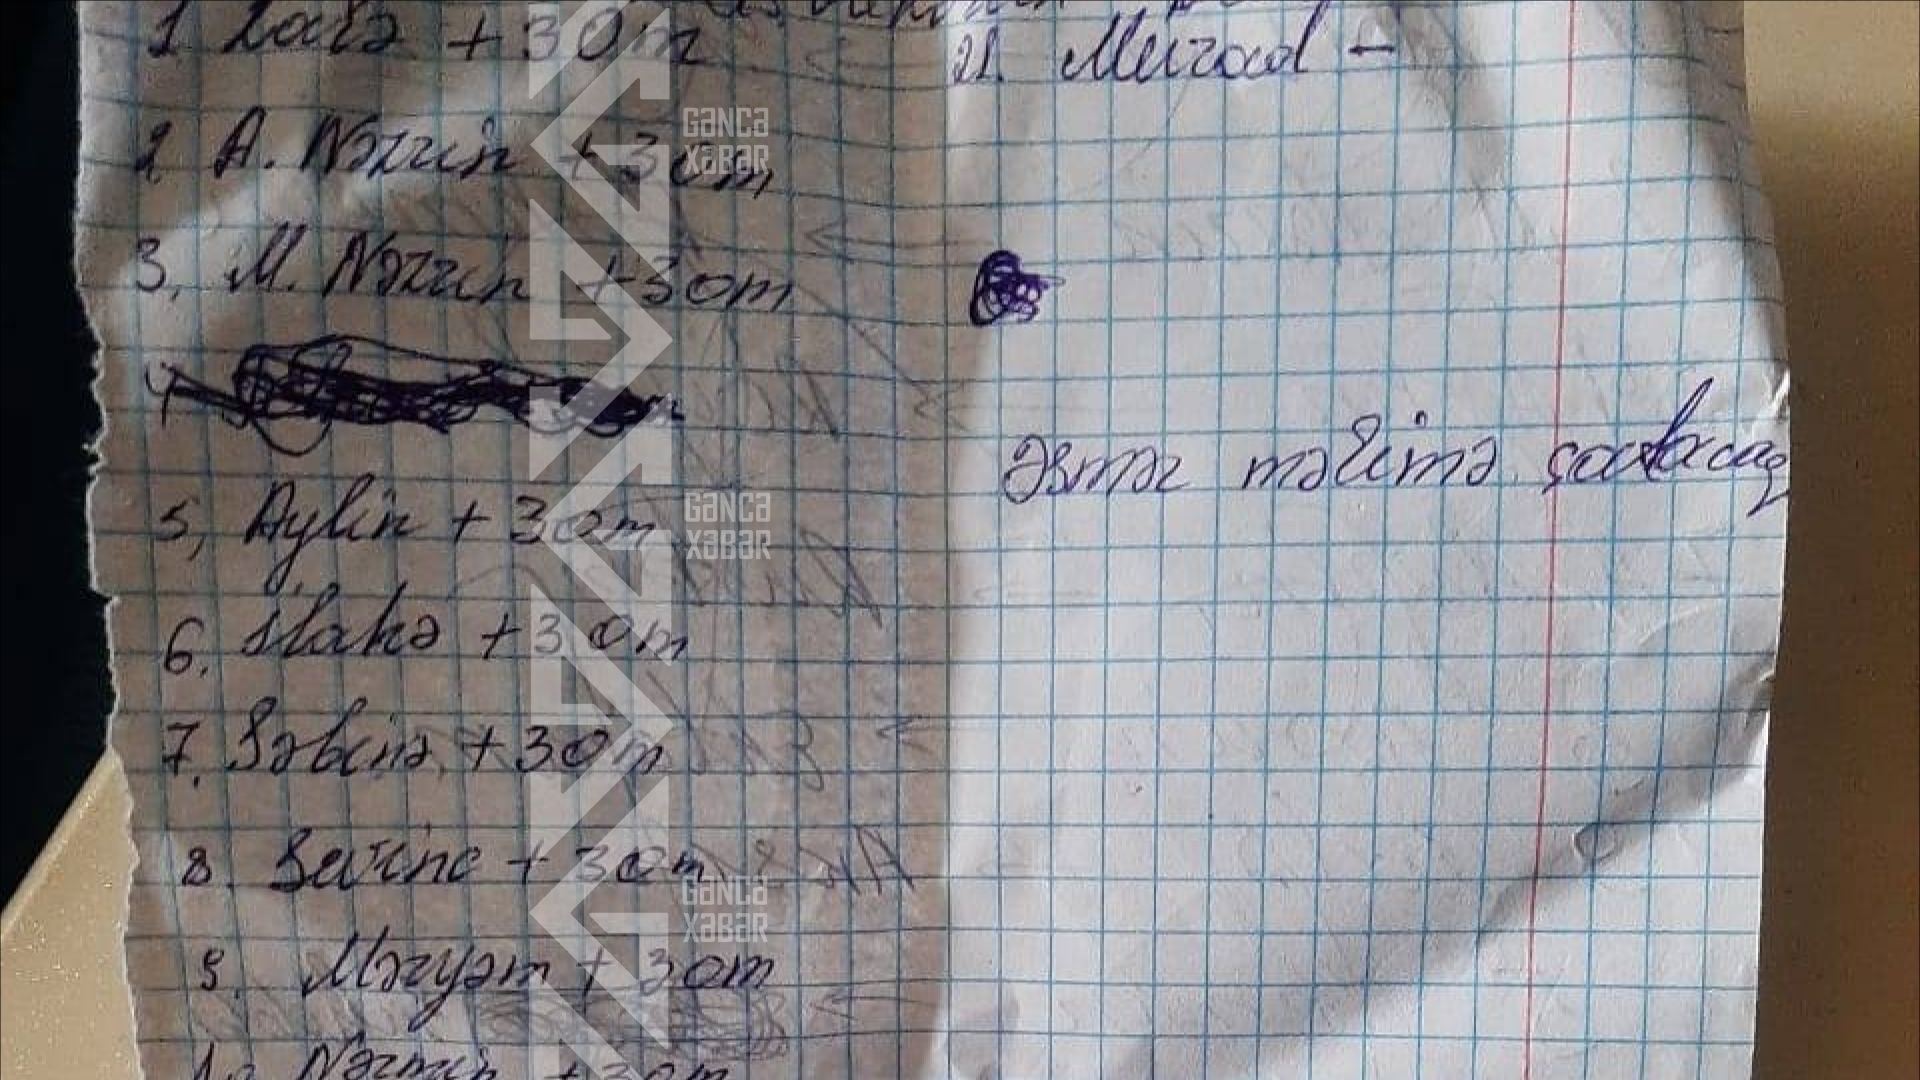 1. Zarə +30m
2 A. Nəzrin +30m
3. M. Nəzrin +30m
4
5, Aylin +30m
6. İlahə +30m
7. Səbinə +30m
8. Sevinc +30m
9. Məryəm +30m
10 Nərmin +30m
21. Murad -
Əsmər məlimə çatacaq
GƏNCƏ
XƏBƏR
GƏNCƏ
XƏBƏR
GƏNCƏ
XƏBƏR